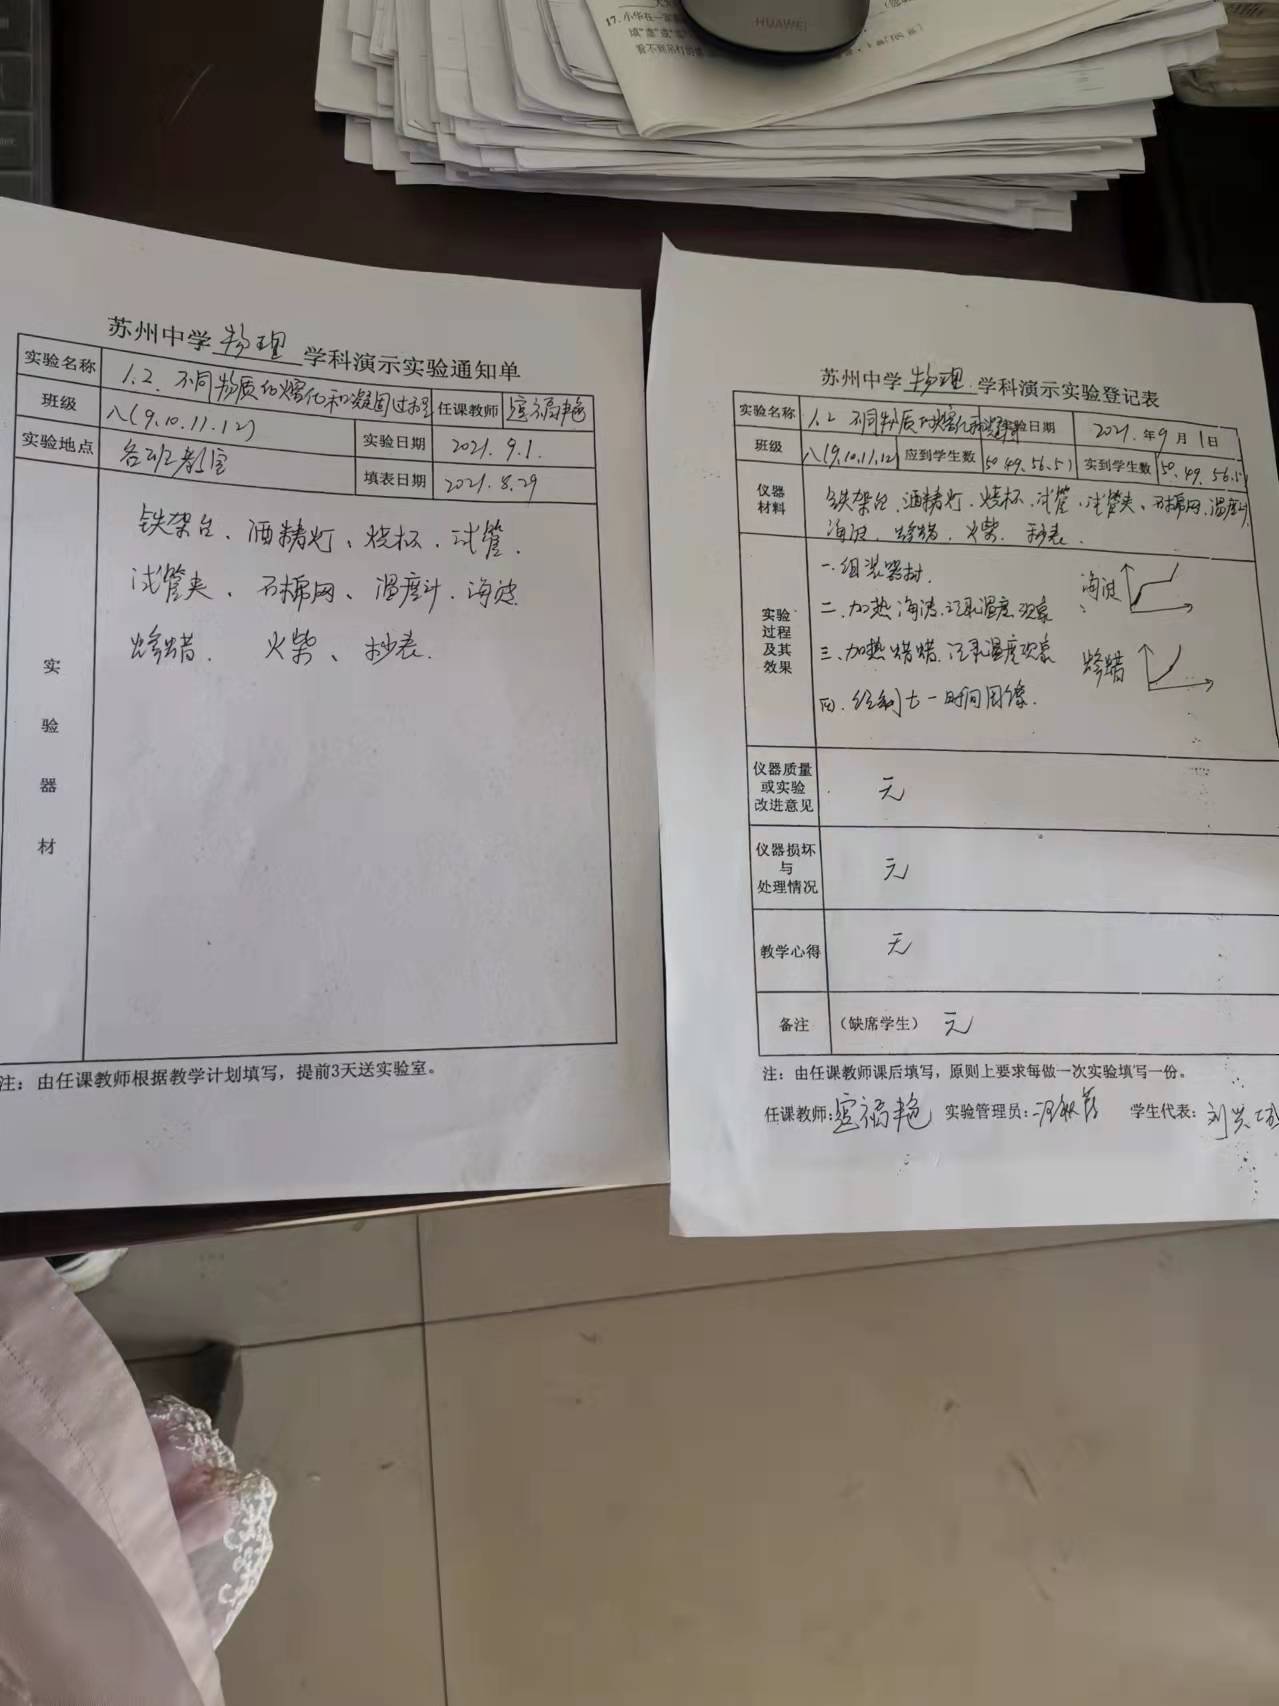 HUAWEI
17.小华在一家
苏州中学 物理 学科演示实验通知单
实验名称 1.2. 不同物质的熔化和凝固过程 任课教师
班级 八(9.10.11.12) 实验日期 2021.9.1.
实验地点 各班教室 填表日期 2021.8.29
实验器材
铁架台、酒精灯、烧杯、试管、
试管夹、石棉网、温度计、海波
蜂蜡. 火柴、秒表.
注：由任课教师根据教学计划填写，提前3天送实验室。
苏州中学 物理 学科演示实验登记表
实验名称 1.2 不同物质的熔化和凝固 实验日期 2021.年9月1日
班级 八(9.10.11.12) 应到学生数 50.49.56.51 实到学生数 50.49.56.51
仪器材料
铁架台、酒精灯、烧杯、试管、试管夹、石棉网、温度计
海波、蜂蜡、火柴、秒表.
实验过程及其效果
一.组装器材.
二.加热海波.记录温度.现象
三.加热蜂蜡.记录温度现象
四.绘制t-时间图像.
海波
蜂蜡
仪器质量或实验改进意见 无
仪器损坏与处理情况 无
教学心得 无
备注 （缺席学生） 无
注：由任课教师课后填写，原则上要求每做一次实验填写一份。
任课教师： 实验管理员： 学生代表：